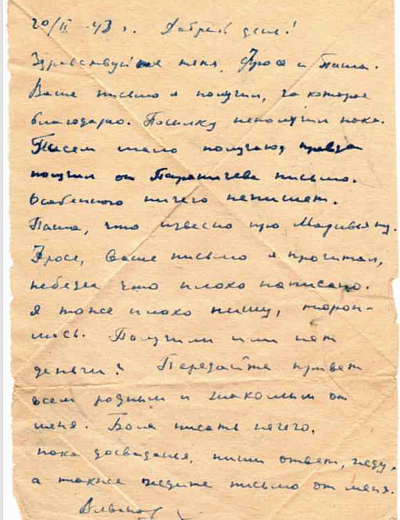 20/II-43 г. Добрый день!
Здравствуйте тетя, Фрося и Паша.
Ваше письмо я получил, за которое
благодарю. Посылку неполучил пока.
Писем мало получаю правда
получил от письмо.
Особенного ничего непишет.
Паша, что извесно про
Фрося, Ваше письмо я прочитал,
небеда что плохо написано.
Я тоже плохо пишу, тороп-
люсь. Получили или нет
деньги? Передайте привет
всем родным и знакомым от
меня. Боле писать нечего,
пока досвиданья, пиши ответ, жду,
а также ждите письмо от меня.